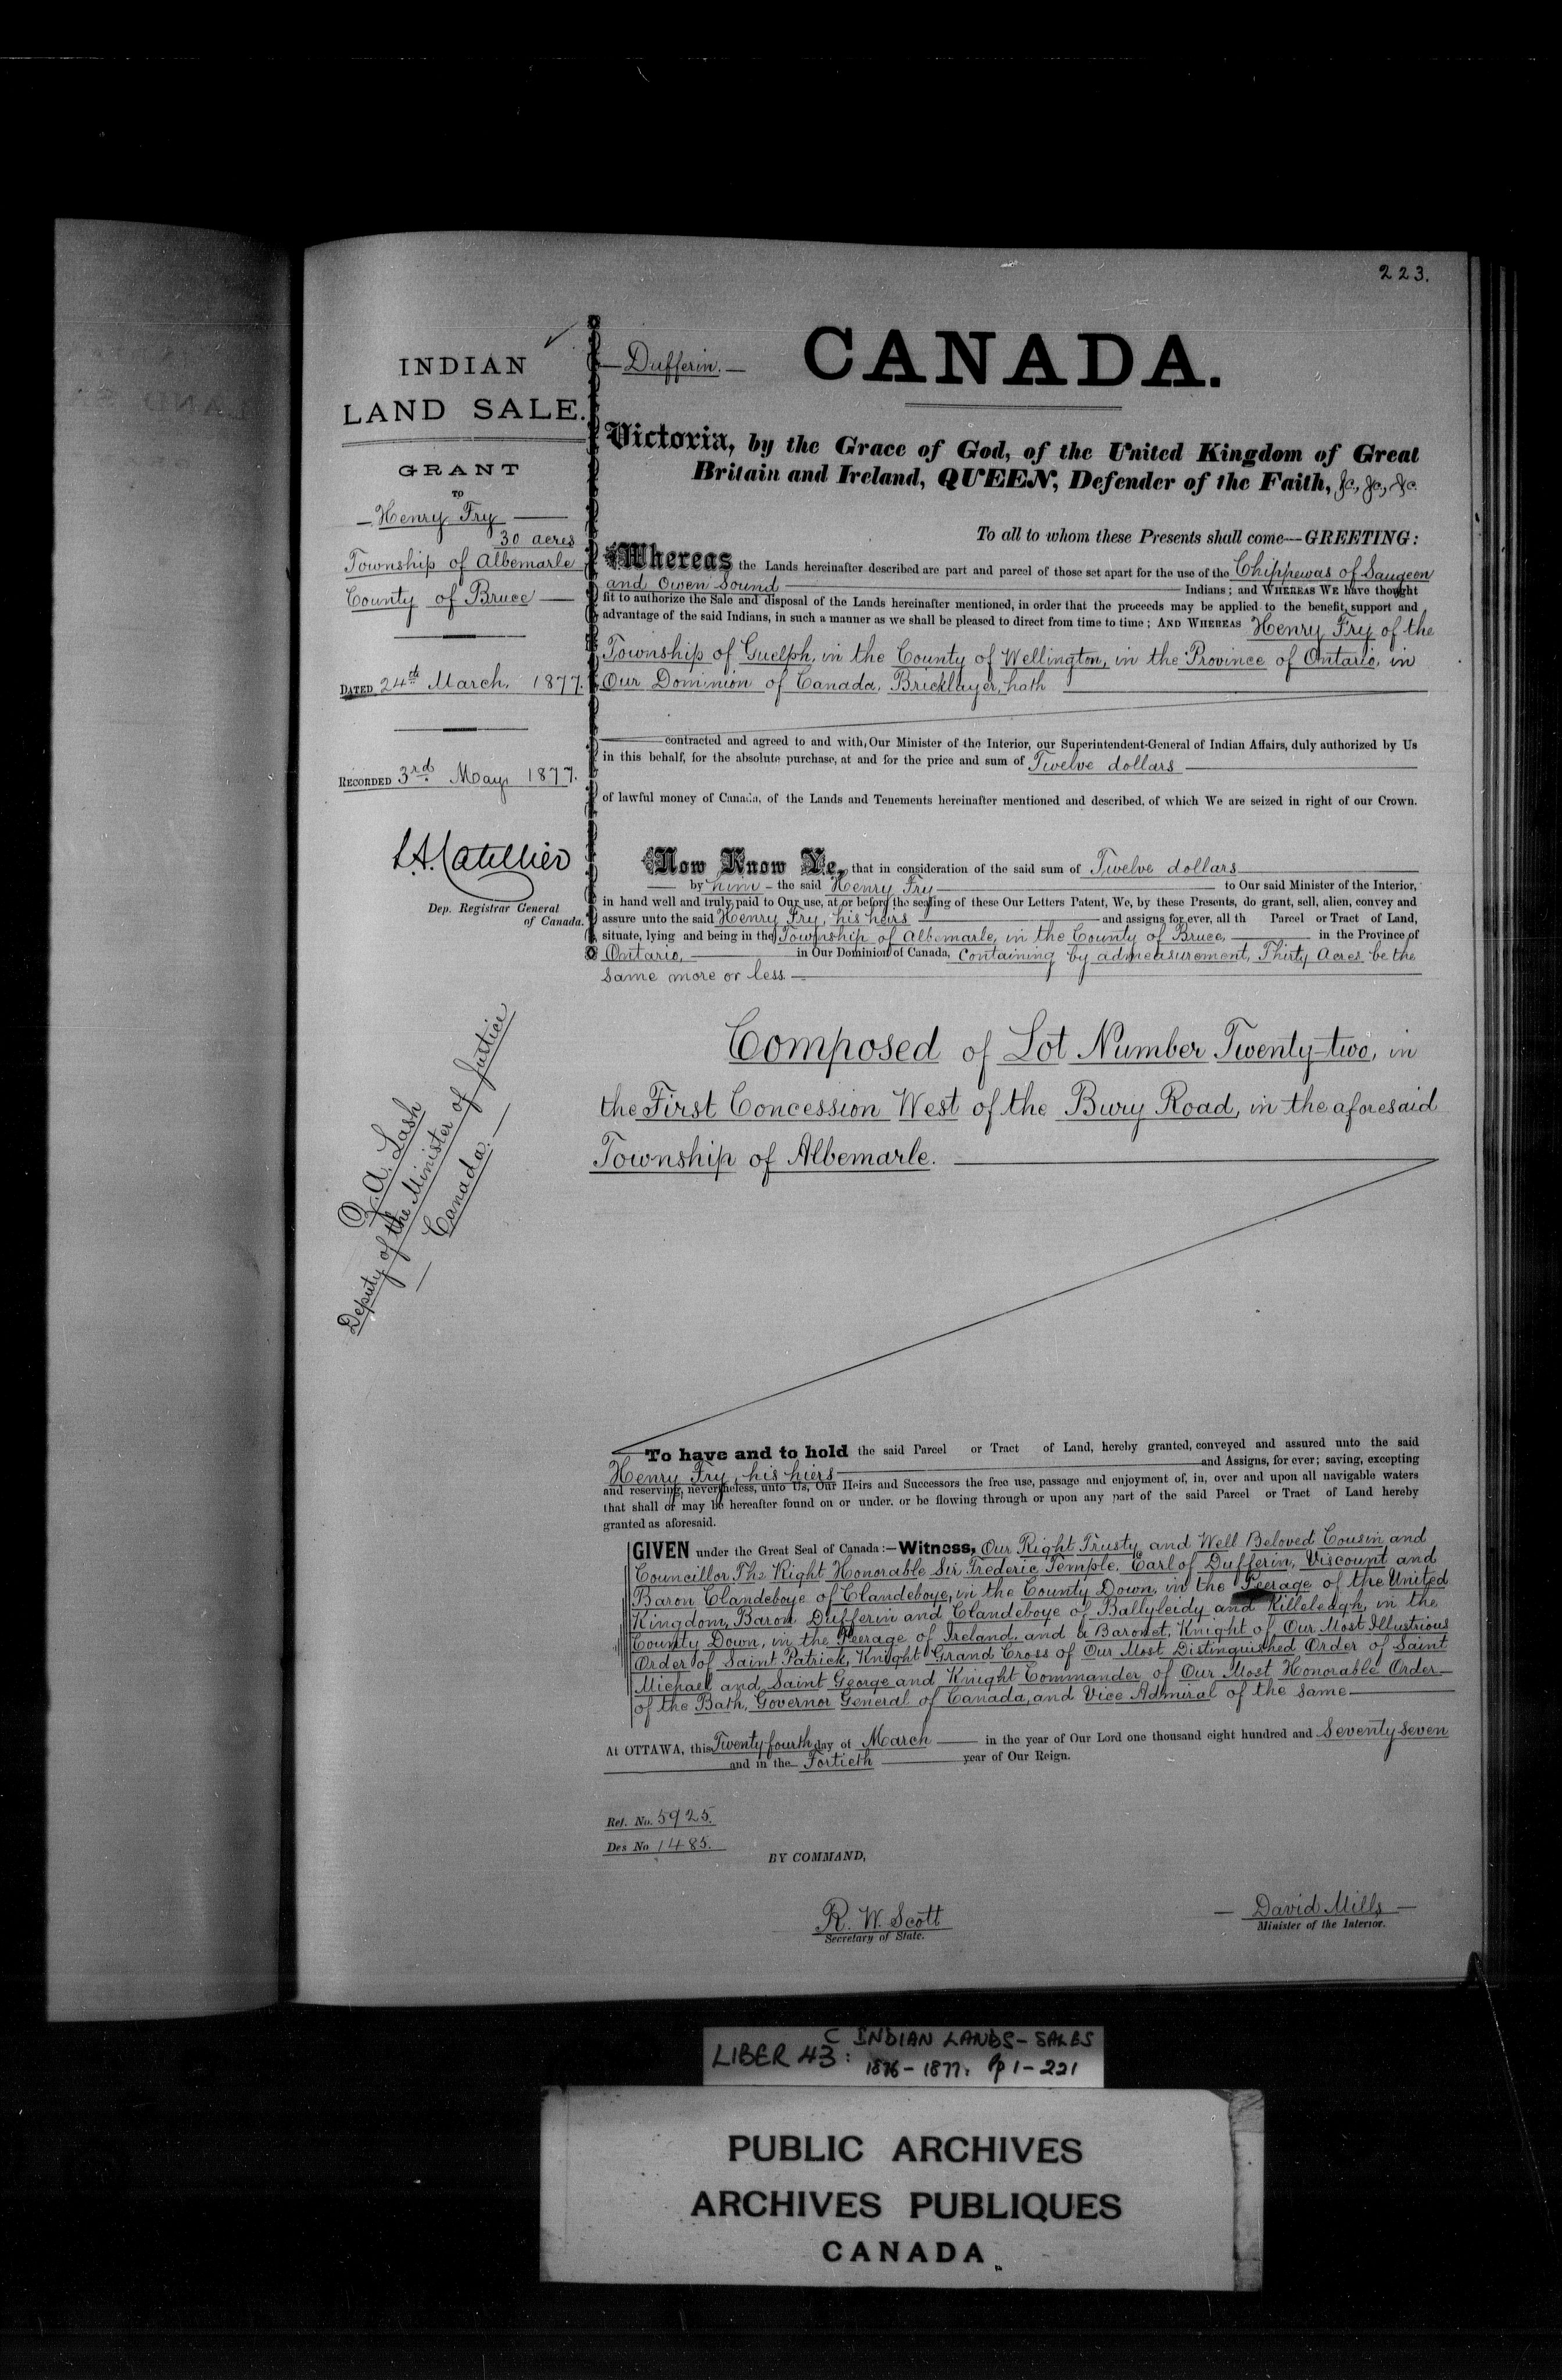 223.
INDIAN
LAND SALE.
GRANT
TO
Henry Fry
30 acres
Township of Albemarle
County of Bruce
DATED 24th March, 1877.
RECORDED 3rd May 1877.
L.A. Catellier
Dep. Registrar General
of Canada.
Z. A. Lash
Deputy of the Minister of Justice
Canada.
Dufferin.
CANADA.
Victoria, by the Grace of God, of the United Kingdom of Great
Britain and Ireland, QUEEN, Defender of the Faith, &c, &c, &c.
To all to whom these Presents shall come—GREETING:
Whereas the Lands hereinafter described are part and parcel of those set apart for the use of the Chippewas of Saugeen
and Owen Sound Indians; and WHEREAS WE have thought
fit to authorize the Sale and disposal of the Lands hereinafter mentioned, in order that the proceeds may be applied to the benefit, support and
advantage of the said Indians, in such a manner as we shall be pleased to direct from time to time; AND WHEREAS Henry Fry of the
Township of Guelph, in the County of Wellington, in the Province of Ontario, in
Our Dominion of Canada, Bricklayer, hath
contracted and agreed to and with, Our Minister of the Interior, our Superintendent-General of Indian Affairs, duly authorized by Us
in this behalf, for the absolute purchase, at and for the price and sum of Twelve dollars
of lawful money of Canada, of the Lands and Tenements hereinafter mentioned and described, of which We are seized in right of our Crown.
Now Know Ye, that in consideration of the said sum of Twelve dollars
by him – the said Henry Fry to Our said Minister of the Interior,
in hand well and truly paid to Our use, at or before the sealing of these Our Letters Patent, We, by these Presents, do grant, sell, alien, convey and
assure unto the said Henry Fry, his heirs and assigns for ever, all th Parcel or Tract of Land,
situate, lying and being in the Township of Albemarle, in the County of Bruce, in the Province of
Ontario, in Our Dominion of Canada, containing by admeasurement, Thirty Acres be the
same more or less.
Composed of Lot Number Twenty-two, in
the First Concession West of the Bury Road, in the aforesaid
Township of Albemarle.
To have and to hold the said Parcel or Tract of Land, hereby granted, conveyed and assured unto the said
Henry Fry, his hiers and Assigns, for ever; saving, excepting
and reserving, nevertheless, unto Us, Our Heirs and Successors the free use, passage and enjoyment of, in, over and upon all navigable waters
that shall or may be hereafter found on or under, or be flowing through or upon any part of the said Parcel or Tract of Land hereby
granted as aforesaid.
GIVEN under the Great Seal of Canada:—Witness, Our Right Trusty and Well Beloved Cousin and
Councillor The Right Honorable Sir Frederic Temple, Earl of Dufferin, Viscount and
Baron Clandeboye of Clandeboye, in the County Down, in the Peerage of the United
Kingdom, Baron Dufferin and Clandeboye of Ballyleidy and Killeleagh, in the
County Down, in the Peerage of Ireland, and a Baronet, Knight of Our Most Illustrious
Order of Saint Patrick, Knight Grand Cross of Our Most Distinguished Order of Saint
Michael and Saint George and Knight Commander of Our Most Honorable Order
of the Bath, Governor General of Canada, and Vice Admiral of the same
At OTTAWA, this Twenty fourth day of March in the year of Our Lord one thousand eight hundred and Seventy Seven
and in the Fortieth year of Our Reign.
Ref. No. 5925.
Des No 1485.
BY COMMAND,
R. W. Scott
Secretary of State.
David Mills
Minister of the Interior.
LIBER 43: C INDIAN LANDS - SALES
1876 - 1877. pp 1 - 221
PUBLIC ARCHIVES
ARCHIVES PUBLIQUES
CANADA